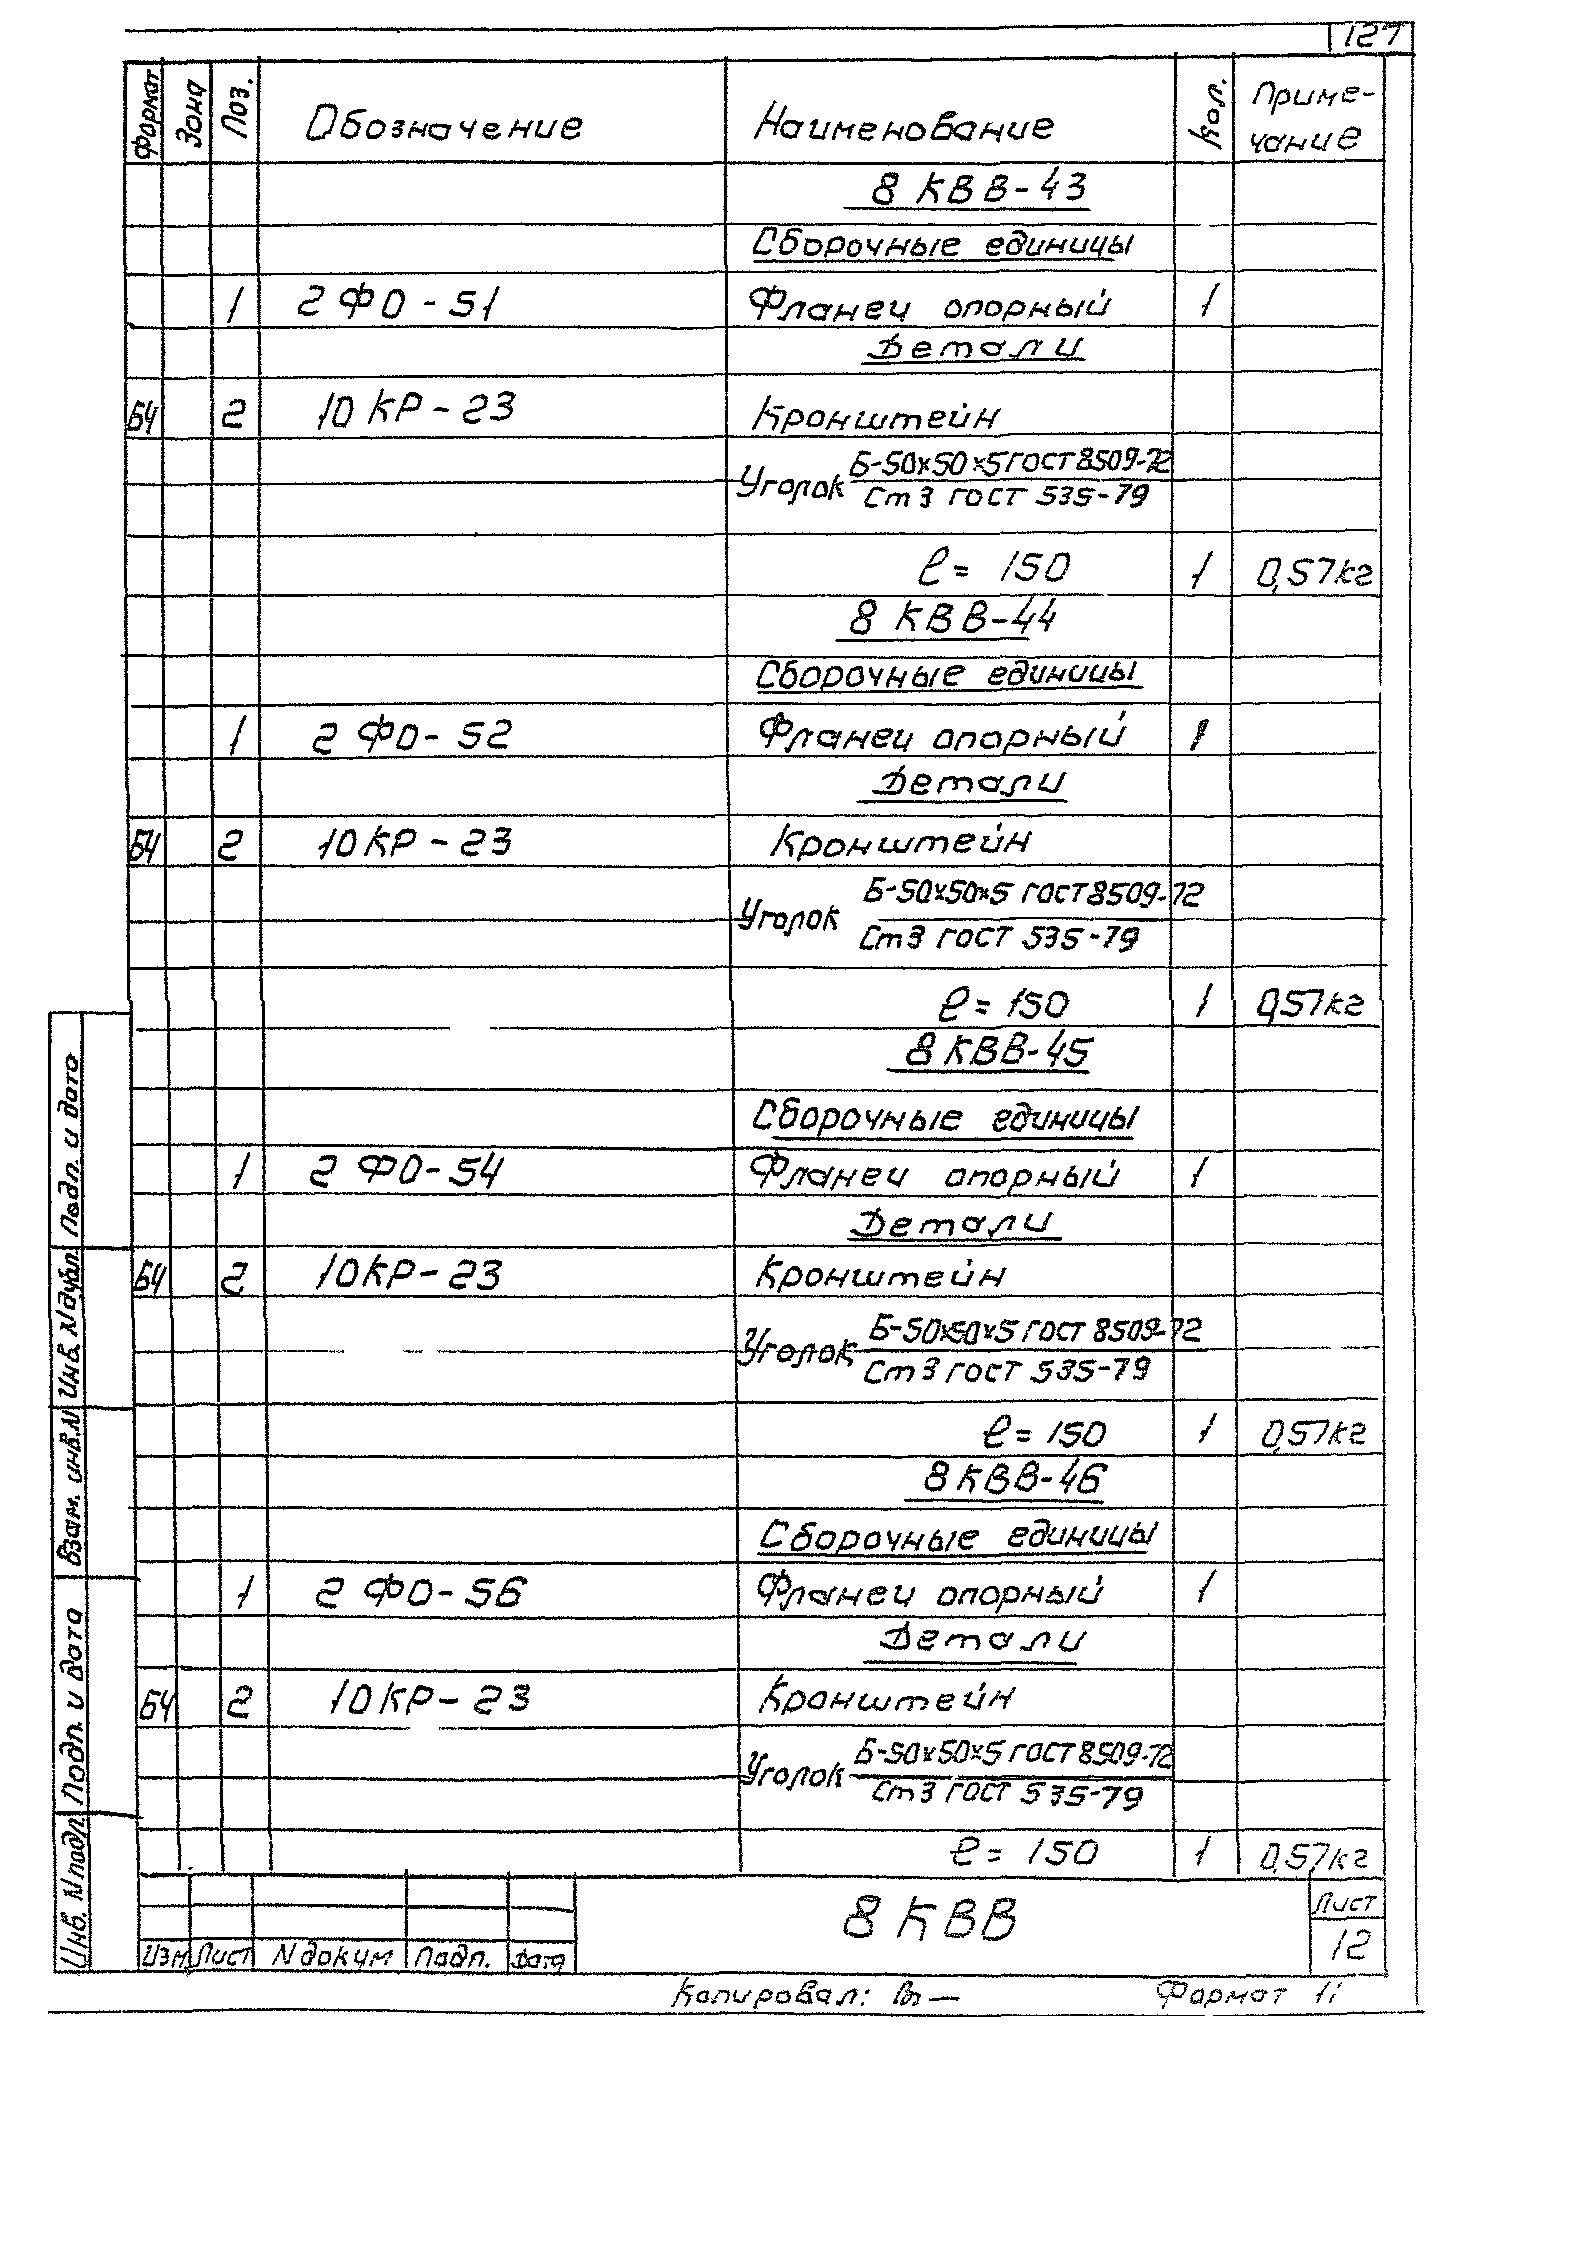 127
Формат Зона Поз. Обозначение Наименование Кол. Приме-
чание
8 КВВ-43
Сборочные единицы
1 2 ФО-51 Фланец опорный 1
Детали
БЧ 2 10 КР-23 Кронштейн
Уголок Б-50х50х5 ГОСТ 8509-72
Ст 3 ГОСТ 535-79
ℓ= 150 1 0,57кг
8 КВВ-44
Сборочные единицы
1 2 ФО-52 Фланец опорный 1
Детали
БЧ 2 10 КР-23 Кронштейн
Уголок Б-50х50х5 ГОСТ 8509-72
Ст 3 ГОСТ 535-79
ℓ= 150 1 0,57кг
8 КВВ-45
Сборочные единицы
1 2 ФО-54 Фланец опорный 1
Детали
БЧ 2 10 КР-23 Кронштейн
Уголок Б-50х50х5 ГОСТ 8509-72
Ст 3 ГОСТ 535-79
ℓ= 150 1 0,57кг
8 КВВ-46
Сборочные единицы
1 2 ФО-56 Фланец опорный 1
Детали
БЧ 2 10 КР-23 Кронштейн
Уголок Б-50х50х5 ГОСТ 8509-72
Ст 3 ГОСТ 535-79
ℓ= 150 1 0,57кг
Подп. и дата
Инв. N дубл.
Взам. инв. N
Подп. и дата
Инв. N подл.
Изм Лист N докум Подп. Дата
8 КВВ
Лист
12
Копировал: Формат 11